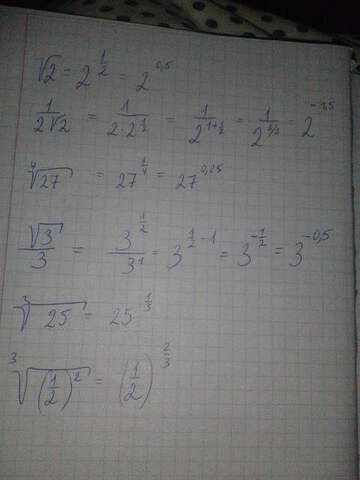 √2 = 2^(1/2) = 2^0,5
1/(2√2) = 1/(2·2^(1/2)) = 1/2^(1+1/2) = 1/2^(3/2) = 2^-1,5
⁴√27 = 27^(1/4) = 27^0,25
√3/3 = 3^(1/2)/3^1 = 3^(1/2 - 1) = 3^(-1/2) = 3^-0,5
³√25 = 25^(1/3)
³√((1/2)^2) = (1/2)^(2/3)